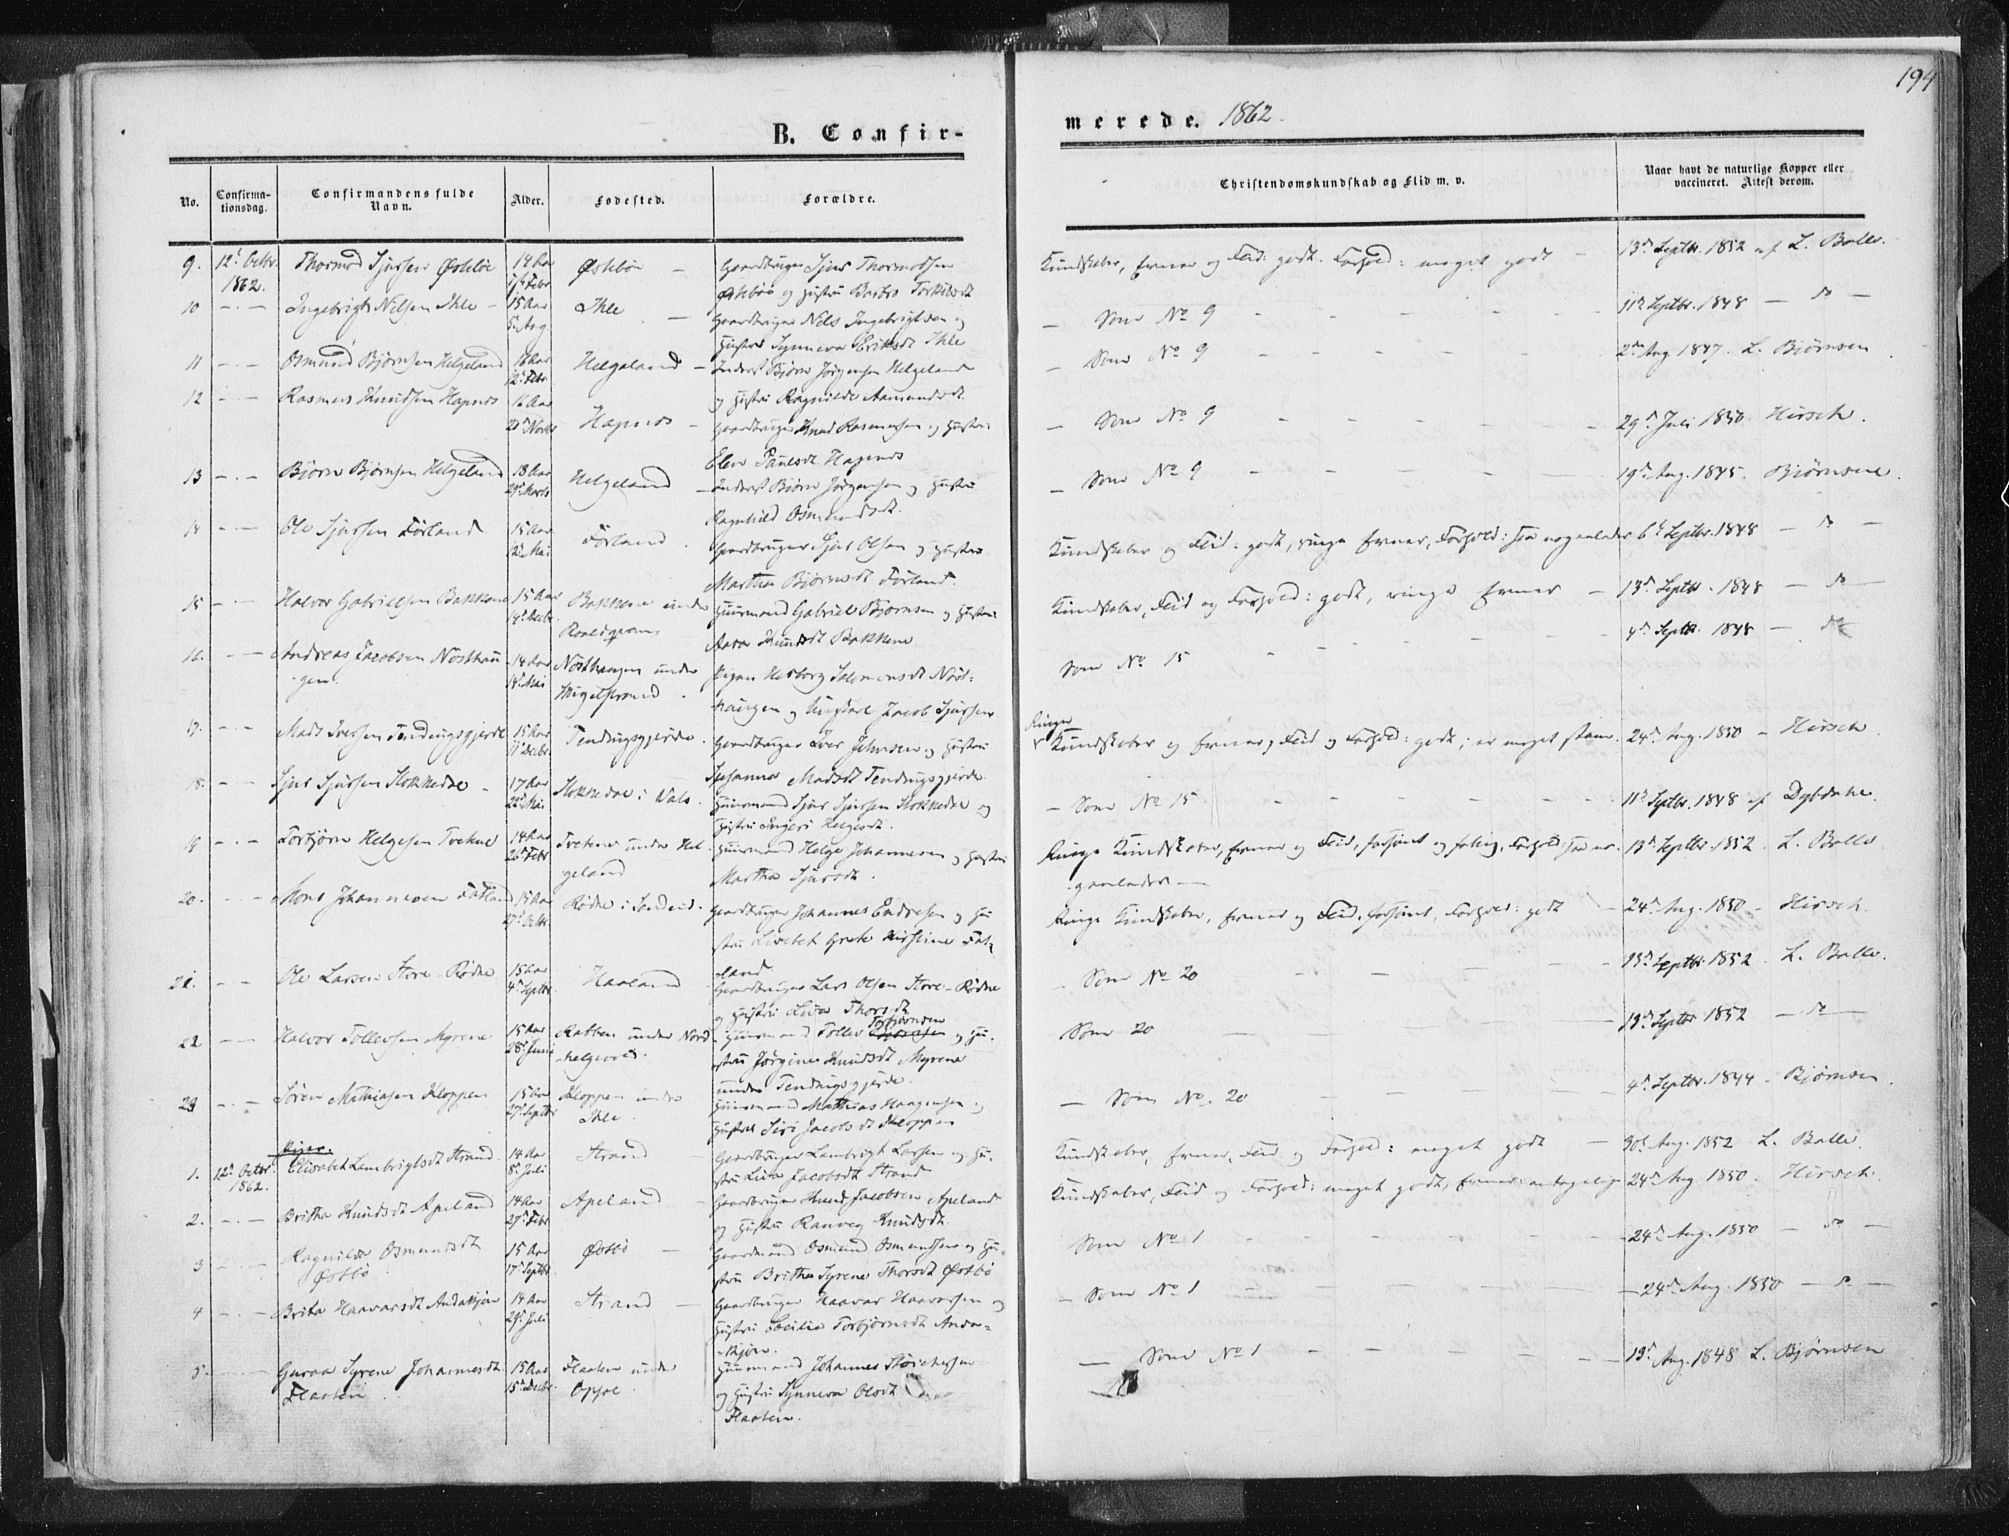 194
B. Confir-
merede. 1862.
No.
Confirma-
tionsdag.
Confirmandens fulde
Navn.
Alder.
Fødested.
Forældre.
Christendomskundskab og Flid m. v.
Naar havt de naturlige Kopper eller
vaccineret. Attest derom.
9. 12t Octbr. 1862. Thormod Sjursen Østebøe 14 Aar Østebøe Gaardbruger Sjur Thormodsen
Østebøe og Hustru Barbro Torkelsdt
Kundskaber, Evner og Flid: godt. Forhold: meget godt 13d Septbr. 1852 af L. Balle.
10 Ingebrigt Nilsen Ihle 15 Aar 5t Aug. Ihle Gaardbruger Nels Ingebrigtsen og
Hustru Synneva Eriksdt Ihle
Som No 9 11t Septbr. 1848 do
11 Osmund Bjørnsen Helgeland 16 Aar 12t Febr. Helgeland Inderst Bjørn Jørgensen Helgeland
og Hustru Ragnilde Aamundsdt.
Som No 9 2den Aug 1847. L. Bjørnsen
12 Rasmus Knudsen Hapnes 16 Aar Hapnes Gaardbruger Knud Rasmussen og Hustru
Elen Paulsdt. Hapnes
Som No 9 29d Juli 1850 Hirsch.
13 Bjørn Bjørnsen Helgeland 18 Aar 29d Marts Helgeland Inderst Bjørn Jørgensen og Hustru
Ragnhild Osmundsdt.
Som No 9 19d Aug. 1845. Bjørnsen.
14 Ole Sjursen Førland 15 Aar 12t Mai Førland. Gaardbruger Sjur Olsen og Hustru
Martha Bjørnsdt Førland.
Kundskaber og Flid: godt, ringe Evner, Forhold: saa nogenledes 6t Septbr. 1848 do
15 Halvor Gabrielsen Bakkene 15 Aar 14d Decbr. Bakkene under
Huusmand Gabriel Bjørnsen og Hustru
Knudsdt Bakkene
Kundskaber, Flid og Forhold: godt, ringe Evner 13d Septbr. 1848 do
16. Andreas Jacobsen Nøsthau
-gen. 14 Aar 14d Mai Nøsthaugen under
Pigen Herborg Salemonsdt Nøst-
haugen og Ungkarl Jacob Sjursen
Som No 15 4d Septbr. 1848 do
17. Mads Iversen Tendingsgjerde 15 Aar 11t Decbr. Tendingsgjerde. Gaardbruger Iver Johnsen og Hustru
Susanna Madsdt Tendingsgjerde
Ringe Kundskaber og Evner, Flid og Forhold: godt; er meget stam. 24d Aug. 1850 Hirsch
18. Sjur Sjursen Stokkedae 17 Aar 22d Mai Stokkedae i Vats. Huusmand Sjur Sjursen Stokkedae og
Hustru Ingeri Helgesdt.
Som No 15. 11t Septbr. 1848 af Dybdahl.
19 Torbjørn Helgesen Tvetene 14 Aar 20d Febr Tvetene under Hel-
geland Huusmand Helge Johannesen og Hustru
Martha Sjursdt.
Ringe Kundskaber, Evner og Flid, Forhold: saa no-
genledes 13d Septbr. 1852. L. Balle.
20. Johannesen Fatland 15 Aar 27d Octbr. Rødne i Sandeid. Gaardbruger Johannes Endresen og Hu
stru Lisebet Grete Kirstine Fat-
land
Ringe Kundskaber, Evner og Flid, Forhold: godt 24d Aug. 1850 Hirsch
21. Ole Larsen Store-Rødne 15 Aar 4d Septbr. Haaland Gaardbruger Lars Olsen Store-Rødne
og Hustru Liva Thorsdt
Som No 20 13d Septbr. 1852. L. Balle.
22 Halvor Tollevsen Myrene 15 Aar 28d Juni under Nord-
helgeval. Huusmand Tollev Torbjørnsen og Hu-
stru Jørgine Knudsdt Myrene
under Tendingsgjerde.
Som 20 13d Septbr 1852 do
23 Søren Mathiasen Kloppen 15 Aar 27d Septbr Kloppen under
Ihle. Huusmand Mathias Haagensen og
Hustru Siri Jacobsdt Kloppen
Som No. 20 4d Septbr. 1844 Bjørnsen
Piger.
1. 12t Octbr. 1862. Elisabet Lambrigtsdt Strand. 14 Aar 8d Juli Strand Gaardbruger Lambrigt Larsen og Hu-
stru Liva Jacobsdt Strand
Kundskaber, Evner, Flid og Forhold: meget godt 30t Aug. 1852 L. Balle.
2. Britha Knudsdt Apeland 14 Aar 27d Febr. Apeland Gaardbruger Knud Jacobsen Apeland
og Hustru Ranveg Knudsdt.
Kundskaber, Flid og Forhold: meget godt, Evner: antagelige 24d Aug 1850. Hirsch.
3 Ragnilda Osmundsdt
Østbø 15 Aar 17d Septbr. Østbø Gaardmand Osmund Osmundsen og Hu-
stru Britha Syrene Thorsdt Østbø
Som No 1 24d Aug. 1850 do
4 Brita Haavarsdt Andaskjær 14 Aar 29d Juli Strand Gaardbruger Haavar Haavarsen og
Hustru Cecilia Torbjørnsdt Anda-
skjær.
Som No 1 24d Aug. 1850 do
5. Guroa Syrene Johannesdt
Flaaten. 15 Aar 15d Decbr. Flaaten under
Opsal. Huusmand Johannes
og Hustru Synneva Olsdt
Flaaten.
Som No 1 19d Aug. 1848 L. Bjørnsen